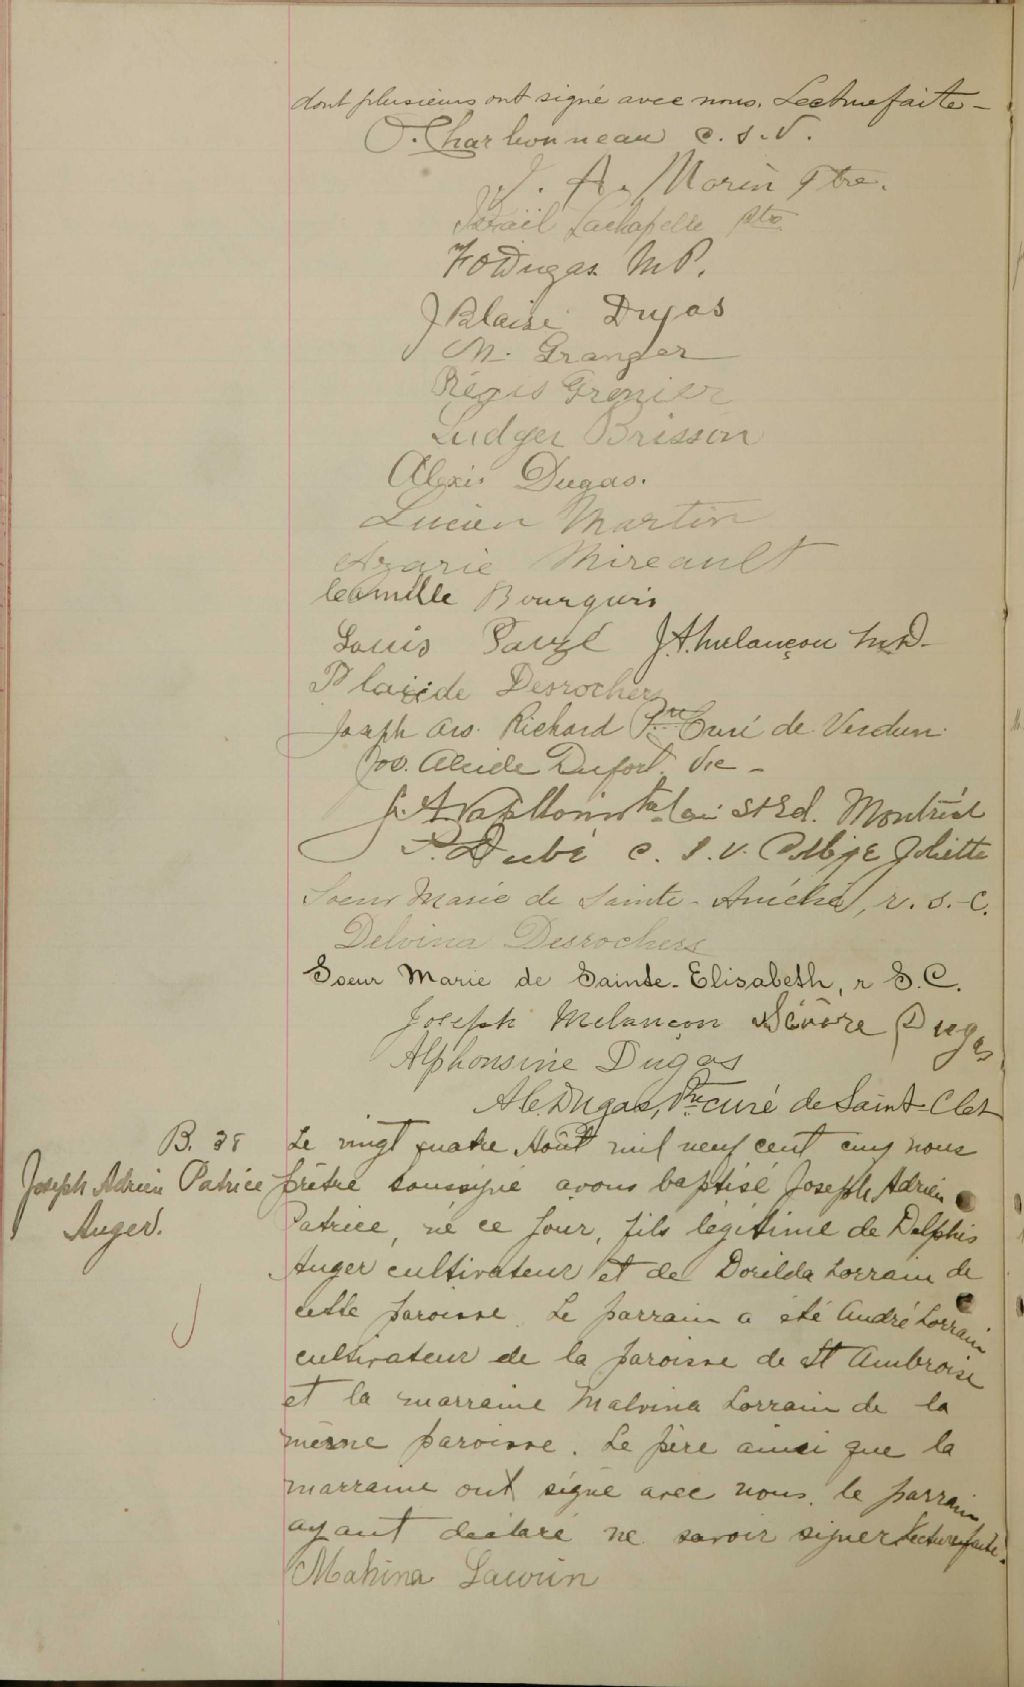 dont plusieurs ont signé avec nous. Lecture faite -
O. Charbonneau c. s. v.
J. A. Morin Ptre.
Israël Lachapelle ptre.
F O Dugas M P.
J Blaise Dugas
M. Granger
Régis Grenier
Ludger Brisson
Alexis Dugas.
Lucien Martin
Azarie Mireault
Camille Bourgeois
Louis Pauzé J. A. Melançon M.D.
Placide Desrochers
Joseph Ars. Richard Ptre Curé de Verdun.
Jos. Alcide Dufort Vic -
St Ed. Montréal
P. Dubé c. s. v. Collège Joliette
Soeur Marie de Sainte- r. s. -C.
Delvina Desrochers
Soeur Marie de Sainte-Elisabeth, r S. C.
Joseph Melancon Sévère Dugas
Alphonsine Dugas
Dugas, Ptre curé de Saint-Clet
B. 38
Joseph Adrien Patrice
Auger.
Le vingt quatre Août mil neuf cent cinq nous
prêtre soussigné avons baptisé Joseph Adrien
Patrice, né ce jour, fils légitime de Delphis
Auger cultivateur et de Dorilda Lorrain de
cette paroisse. Le parrain a été André Lorrain
cultivateur de la paroisse de St Ambroise
et la marraine Malvina Lorrain de la
même paroisse. Le père ainsi que la
marraine ont signé avec nous, le parrain
ayant déclaré ne savoir signer. Lecture faite.
Malvina Lawrin